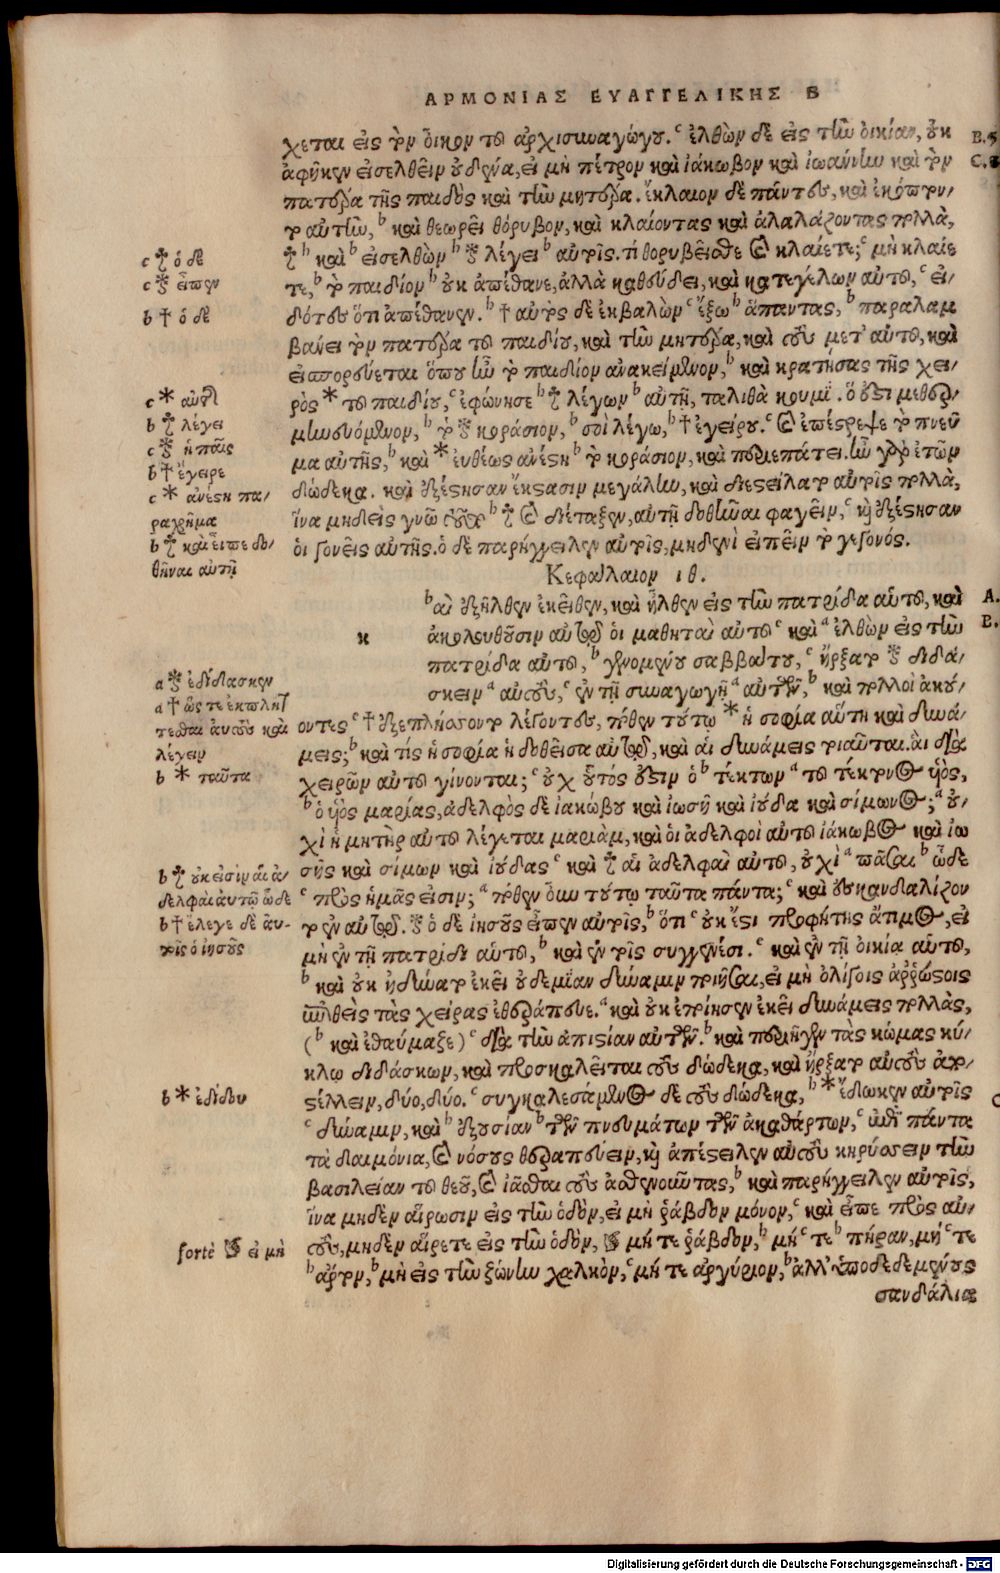 ΑΡΜΟΝΙΑΣ ΕΥΑΓΓΕΛΙΚΗΣ Β
χεται εἰς τὸν οἶκον τοῦ ἀρχισυναγώγου. ᶜ ἐλθὼν δὲ εἰς τὴν οἰκίαν, οὐκ
B.5
ἀφῆκεν εἰσελθεῖν οὐδένα, εἰ μὴ πέτρον καὶ ἰάκωβον καὶ ἰωάννην καὶ τὸν
C.8
πατέρα τῆς παιδὸς καὶ τὴν μητέρα. ἔκλαιον δὲ πάντες, καὶ ἐκόπτον/
το αὐτὴν, ᵇ καὶ θεωρεῖ θόρυβον, καὶ κλαίοντας καὶ ἀλαλάζοντας πολλὰ,
c ὁ δὲ
ᵇ καὶ ᵇ εἰσελθὼν ᵇ λέγει ᵇ αὐτοῖς. τί θορυβεῖσθε καὶ κλαίετε; ᶜ μὴ κλαίε
c εἶπεν
τε, ᵇ τὸ παιδίον ᵇ οὐκ ἀπέθανε, ἀλλὰ καθεύδει, καὶ κατεγέλων αὐτοῦ, ᶜ εἰ/
b † ὁ δὲ
δότες ὅτι ἀπέθανεν. ᵇ † αὐτὸς δὲ ἐκβαλὼν ᶜ ἔξω ᵇ ἅπαντας, ᵇ παραλαμ
βάνει τὸν πατέρα τοῦ παιδίου, καὶ τὴν μητέρα, καὶ τοὺς μετ' αὐτοῦ, καὶ
εἰσπορεύεται ὅπου ἦν τὸ παιδίον ἀνακείμενον, ᵇ καὶ κρατήσας τῆς χει/
c * αὐτῆς
ρὸς * τοῦ παιδίου, ᶜ ἐφώνησε ᵇ λέγων ᵇ αὐτῇ, ταλιθὰ κουμί. ὅ ἐστι μεθερ/
b λέγει
μηνευόμενον, ᵇ τὸ κοράσιον, ᵇ σοὶ λέγω, ᵇ † ἐγείρου. ᶜ καὶ ἐπέστρεψε τὸ πνεῦ
c ἡ παῖς
μα αὐτῆς, ᵇ καὶ * εὐθέως ἀνέστη ᵇ τὸ κοράσιον, καὶ περιεπάτει. ἦν γὰρ ἐτῶν
b † ἔγειρε
δώδεκα. καὶ ἐξέστησαν ἔκστασιν μεγάλην, καὶ διεστείλατο αὐτοῖς πολλὰ,
c * ἀνέστη πα/
ραχρῆμα
ἵνα μηδεὶς γνῶ τοῦτο ᵇ καὶ διέταξεν, αὐτῇ δοθῆναι φαγεῖν, ᶜ κὶ ἐξέστησαν
b καὶ εἶπε δο/
θῆναι αὐτῇ
οἱ γονεῖς αὐτῆς. ὁ δὲ παρήγγειλεν αὐτοῖς, μηδενὶ εἰπεῖν τὸ γεγονός.
Κεφάλαιον ιθ.
κ
ᵇ αὶ ἐξῆλθεν ἐκεῖθεν, καὶ ἦλθεν εἰς τὴν πατρίδα αὑτοῦ, καὶ
A.
ἀκολουθοῦσιν αὐτῷ οἱ μαθηταὶ αὐτοῦ ᶜ καὶ ᵃ ἐλθὼν εἰς τὴν
B.
πατρίδα αὐτοῦ, ᵇ γενομένου σαββάτου, ᶜ ἤρξατο διδά/
a ἐδίδασκεν
σκειν ᵃ αὐτοὺς, ᶜ ἐν τῇ συναγωγῇ ᵃ αὐτῶν, ᵇ καὶ πολλοὶ ἀκού/
a † ὥς τε ἐκπλήτ
τεσθαι αὐτοὺς καὶ
λέγειν
οντες ᶜ † ἐξεπλήσσοντο λέγοντες, πόθεν τούτῳ * ἡ σοφία αὕτη καὶ δυνά/
b * ταῦτα
μεις; ᵇ καὶ τίς ἡ σοφία ἡ δοθεῖσα αὐτῷ, καὶ αἱ δυνάμεις τοιαῦται. αἳ διὰ
χειρῶν αὐτοῦ γίνονται; ᶜ οὐχ οὗτός ἐστιν ὁ ᵇ τέκτων ᵃ τοῦ τέκτονος υἱὸς,
ᵇ ὁ υἱὸς μαρίας, ἀδελφὸς δὲ ἰακώβου καὶ ἰωσῆ καὶ ἰούδα καὶ σίμωνος; ᵃ οὐ/
χὶ ἡ μητὴρ αὐτοῦ λέγεται μαριὰμ, καὶ οἱ ἀδελφοὶ αὐτοῦ ἰάκωβος καὶ ἰω
b οὐκ εἰσὶν αἱ ἀ/
δελφαὶ αὐτοῦ ὧδε
σῆς καὶ σίμων καὶ ἰούδας ᶜ καὶ αἱ ἀδελφαὶ αὐτοῦ, οὐχὶ ᵃ πᾶσαι ᵇ ὧδε
ᶜ πρὸς ἡμᾶς εἰσιν; ᵃ πόθεν οὖν τούτῳ ταῦτα πάντα; ᶜ καὶ ἐσκανδαλίζον
b † ἔλεγε δὲ αὐ-
τοῖς ὁ ἰησοῦς
το ἐν αὐτῷ. ὁ δὲ ἰησοῦς εἶπεν αὐτοῖς, ᵇ ὅτι ᶜ οὐκ ἔστι προφήτης ἄτιμος, εἰ
μὴ ἐν τῇ πατρίδι αὑτοῦ, ᵇ καὶ ἐν τοῖς συγγενέσι. ᶜ καὶ ἐν τῇ οἰκίᾳ αὑτοῦ,
ᵇ καὶ οὐκ ἠδύνατο ἐκεῖ οὐδεμίαν δύναμιν ποιῆσαι, εἰ μὴ ὀλίγοις ἀῤῥώστοις
ἐπιθεὶς τὰς χεῖρας ἐθεράπευσε. ᵃ καὶ οὐκ ἐποίησεν ἐκεῖ δυνάμεις πολλὰς,
(ᵇ καὶ ἐθαύμαζε) ᶜ διὰ τὴν ἀπιστίαν αὐτῶν. ᵇ καὶ περιῆγεν τὰς κώμας κύ/
κλῳ διδάσκων, καὶ προσκαλεῖται τοὺς δώδεκα, καὶ ἤρξατο αὐτοὺς ἀπο/
b * ἐδίδου
στέλλειν, δύο, δύο. ᶜ συγκαλεσάμενος δὲ τοὺς δώδεκα, ᵇ * ἔδωκεν αὐτοῖς
C
ᶜ δύναμιν, καὶ ᵇ ἐξουσίαν ᵇ τῶν πνευμάτων τῶν ἀκαθάρτων, ᶜ ἐπὶ πάντα
τὰ δαιμόνια, καὶ νόσους θεραπεύειν, κὶ ἀπέστειλεν αὐτοὺς κηρύσσειν τὴν
βασιλείαν τοῦ θεοῦ, καὶ ἰᾶσθαι τοὺς ἀσθενοῦντας, ᵇ καὶ παρήγγειλεν αὐτοῖς,
ἵνα μηδὲν αἴρωσιν εἰς τὴν ὁδὸν, εἰ μὴ ῥάβδον μόνον, ᶜ καὶ εἶπε πρὸς αὐ/
fortè ☙ εἰ μὴ
τοὺς, μηδὲν αἴρετε εἰς τὴν ὁδὸν, ☙ μή τε ῥάβδον, ᵇ μή ᶜ τε ᵇ πήραν, μή ᶜ τε
ᵇ ἄρτον, ᵇ μὴ εἰς τὴν ζώνην χαλκὸν, ᶜ μή τε ἀργύριον, ᵇ ἀλλ' ὑποδεδεμένους
σανδάλια
Digitalisierung gefördert durch die Deutsche Forschungsgemeinschaft - DFG